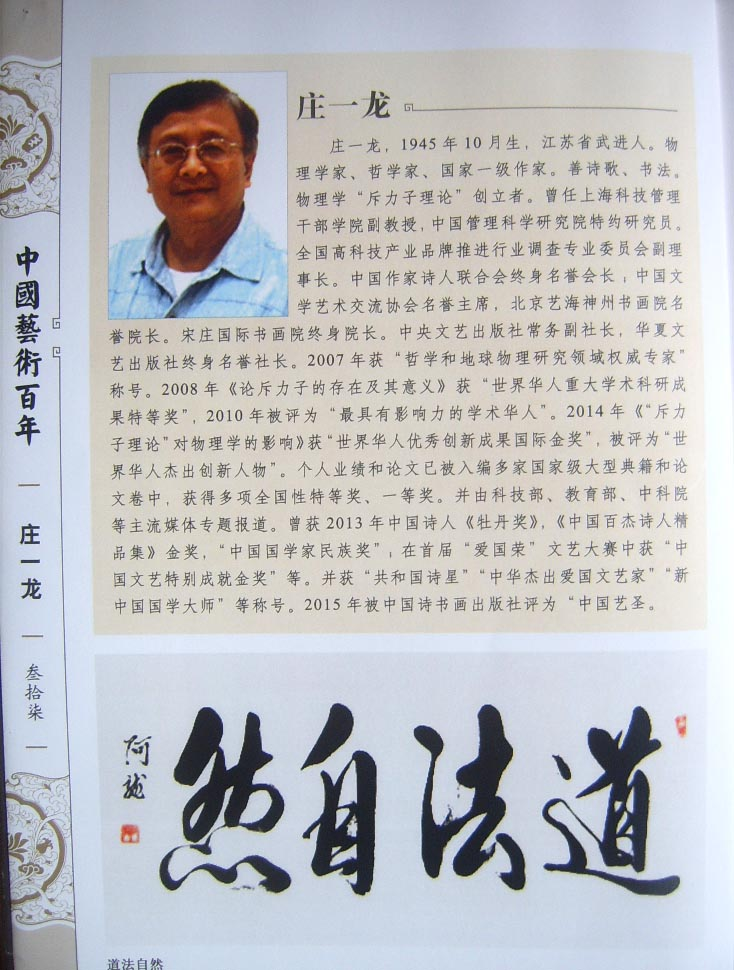 中國藝術百年
庄一龙
叁拾柒
庄一龙
庄一龙，1945年10月生，江苏省武进人。物
理学家、哲学家、国家一级作家。善诗歌、书法。
物理学“斥力子理论”创立者。曾任上海科技管理
干部学院副教授，中国管理科学研究院特约研究员。
全国高科技产业品牌推进行业调查专业委员会副理
事长。中国作家诗人联合会终身名誉会长；中国文
学艺术交流协会名誉主席，北京艺海神州书画院名
誉院长。宋庄国际书画院终身院长。中央文艺出版社常务副社长，华夏文
艺出版社终身名誉社长。2007年获“哲学和地球物理研究领域权威专家”
称号。2008年《论斥力子的存在及其意义》获“世界华人重大学术科研成
果特等奖”，2010年被评为“最具有影响力的学术华人”。2014年《“斥力
子理论”对物理学的影响》获“世界华人优秀创新成果国际金奖”，被评为“世
界华人杰出创新人物”。个人业绩和论文已被入编多家国家级大型典籍和论
文卷中，获得多项全国性特等奖、一等奖。并由科技部、教育部、中科院
等主流媒体专题报道。曾获2013年中国诗人《牡丹奖》，《中国百杰诗人精
品集》金奖，“中国国学家民族奖”；在首届“爱国荣”文艺大赛中获“中
国文艺特别成就金奖”等。并获“共和国诗星”“中华杰出爱国文艺家”“新
中国国学大师”等称号。2015年被中国诗书画出版社评为“中国艺圣。
道法自然
阿龙
道法自然